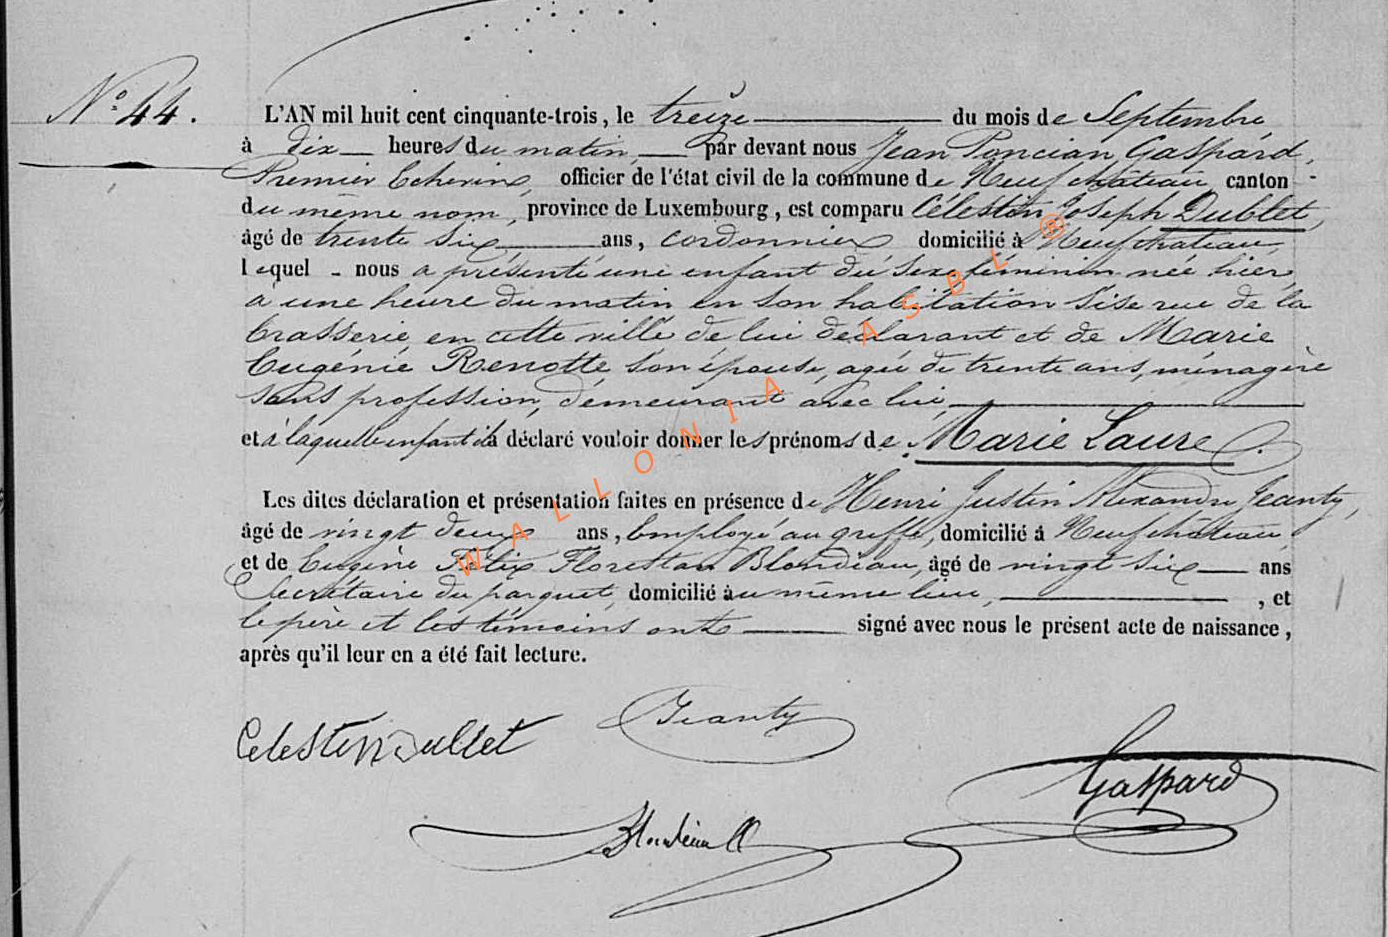 N° 44.
L'AN mil huit cent cinquante-trois, le treize du mois de Septembre
à dix heures du matin, par devant nous Jean Poncian Gaspard,
Premier Echevin, officier de l'état civil de la commune de Neufchâteau, canton
du même nom, province de Luxembourg, est comparu Célestin Joseph Dublet,
âgé de trente six ans, cordonnier domicilié à Neufchateau,
lequel nous a présenté une enfant du sexe féminin née hier
a une heure du matin en son habitation sise rue de la
brasserie en cette ville de lui déclarant et de Marie
Eugénie Renotte son épouse, agée de trente ans, ménagère
sans profession, demeurant avec lui,
et à laquelle enfant il a déclaré vouloir donner les prénoms de Marie Laure.
Les dites déclaration et présentation faites en présence de Henri Justin Alexandre Jeanty,
âgé de vingt deux ans, Employé au greffe, domicilié á Neufchâteau
et de Eugène Félix Florestan Blondiau, âgé de vingt six ans
Secrétaire du parquet, domicilié au même lieu, , et
le père et les témoins ont signé avec nous le présent acte de naissance,
après qu'il leur en a été fait lecture.
Celestin Dublet Jeanty
Gaspard
Blondiau
WALLONIA ASBL ®